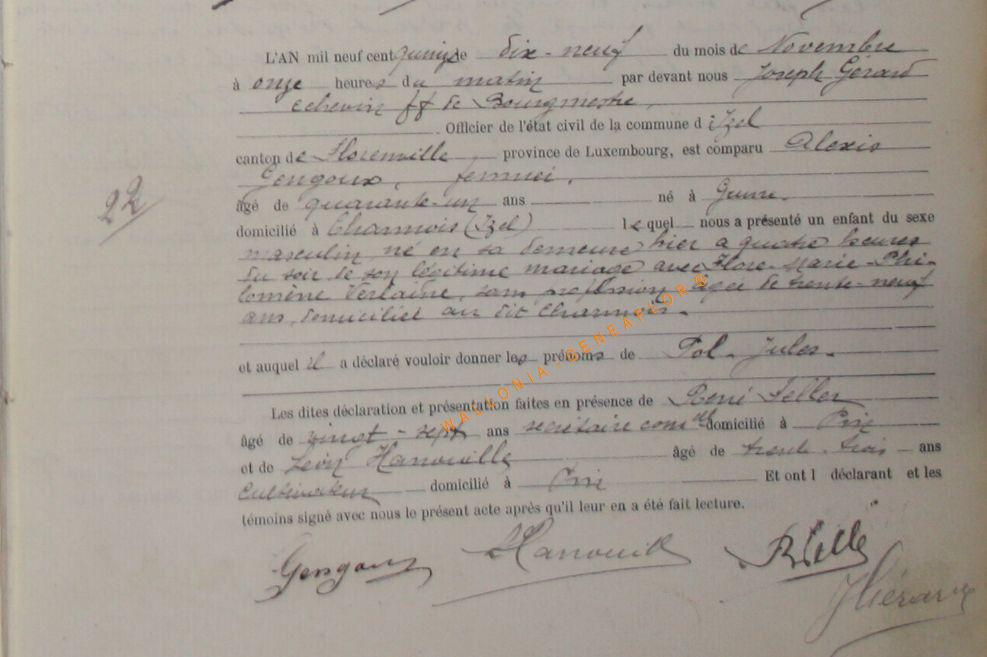 L'AN mil neuf cent quinze de dix-neuf du mois de Novembre
à onze heures du matin par devant nous Joseph Gérard
échevin ff de Bourgmestre,
Officier de l'état civil de la commune d'Izel
canton de Florenville, province de Luxembourg, est comparu Alexis
Gengoux,
âgé de quarante-un ans né à
domicilié à Charmois (Izel) lequel nous a présenté un enfant du sexe
masculin né en sa demeure hier à quatre heures
du soir de son légitime mariage avec Flore Marie-Phi-
lomène Verlaine, sans profession âgée de trente-neuf
ans, domiciliée au dit Charmois.
et auquel il a déclaré vouloir donner les prénoms de Pol-Jules.
Les dites déclaration et présentation faites en présence de René
âgé de vingt-sept ans secrétaire comal domicilié à Pin
22
et de Léon Hanouille âgé de trente-trois ans
cultivateur domicilié à Pin Et ont l déclarant et les
témoins signé avec nous le présent acte après qu'il leur en a été fait lecture.
Gengoux
WALLONIA-GENEAFLOR©